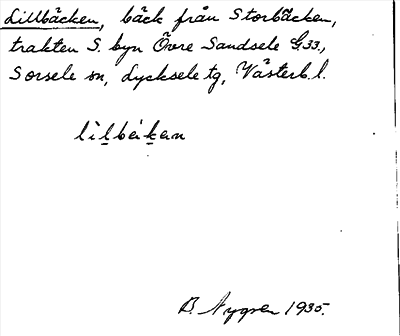 Lillbäcken, bäck från Storbäcken,
trakten S. byn Övre Sandsele G33,
Sorsele sn, Lycksele tg, Västerb. l.
lìlbékan
B. Nygren 1935.